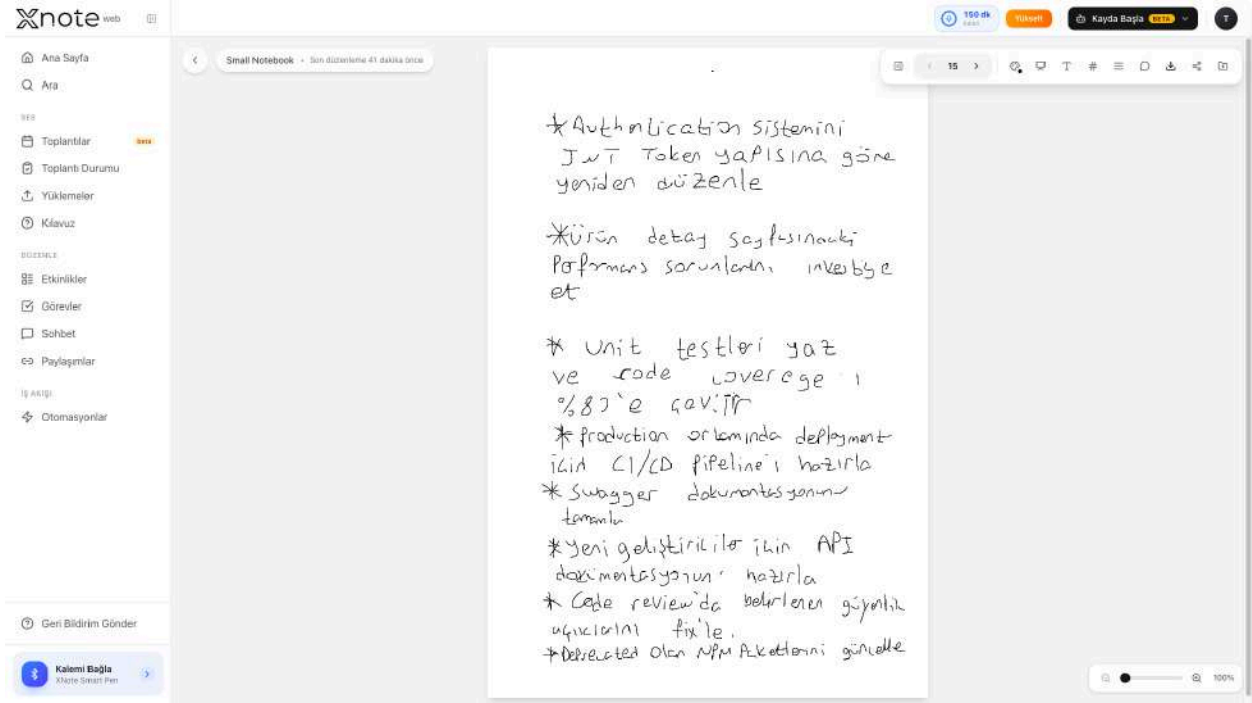 Xnote web
150 dk
Yükselt
Kayda Başla BETA
T
Ana Sayfa
Ara
SES
Toplantılar beta
Toplantı Durumu
Yüklemeler
Kılavuz
DÜZENLE
Etkinlikler
Görevler
Sohbet
Paylaşımlar
İŞ AKIŞI
Otomasyonlar
Geri Bildirim Gönder
Kalemi Bağla
XNote Smart Pen
Small Notebook • Son düzenleme 41 dakika önce
15
* Authentication sistemini
JWT Token yapısına göre
yeniden düzenle
* Ürün detay sayfasındaki
Performans sorunlarını
et
* Unit testleri yaz
ve code coverage ı
%80'e
* Production ortamında deployment
için CI/CD Pipeline'ı hazırla
* Swagger dokumantasyonunu
tamamla
* Yeni geliştiriciler için API
dokümentasyonunu hazırla
* Code review'da belirlenen güvenlik
açıklarını fix'le.
* Deprecated Olan NPM Paketlerini güncelle
100%